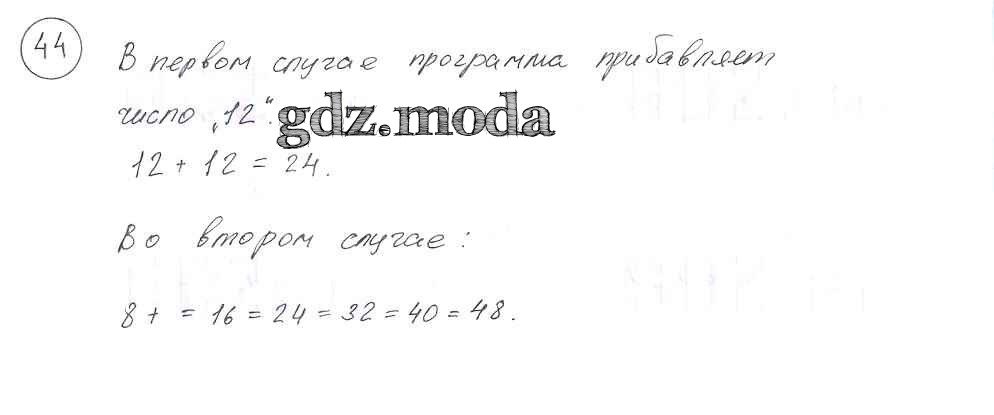 44
В первом случае программа прибавляет
число „12“. gdz.moda
12 + 12 = 24.
Во втором случае:
8 + = 16 = 24 = 32 = 40 = 48.